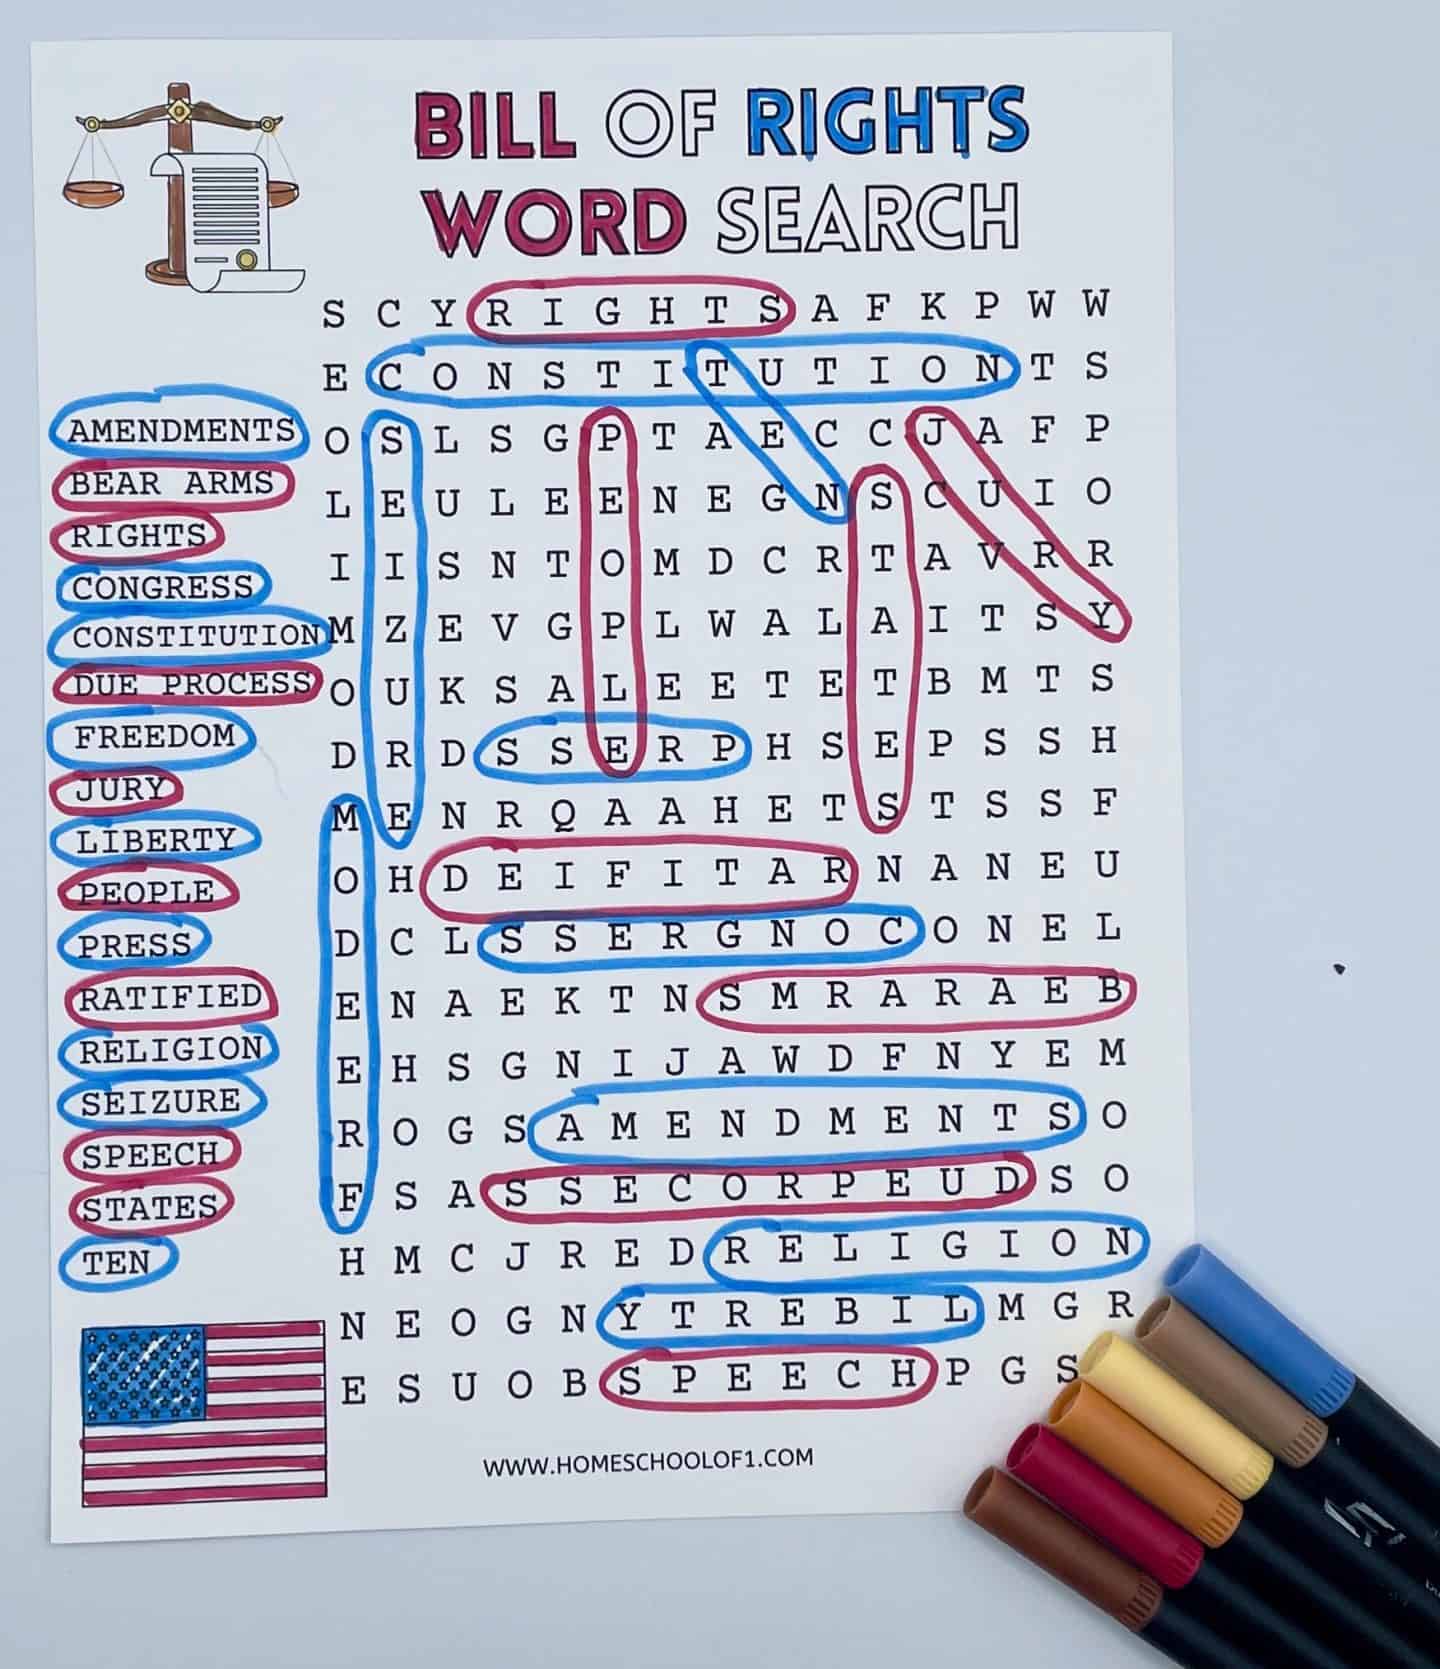 BILL OF RIGHTS
WORD SEARCH
AMENDMENTS
BEAR ARMS
RIGHTS
CONGRESS
CONSTITUTION
DUE PROCESS
FREEDOM
JURY
LIBERTY
PEOPLE
PRESS
RATIFIED
RELIGION
SEIZURE
SPEECH
STATES
TEN
S C Y R I G H T S A F K P W W
E C O N S T I T U T I O N T S
O S L S G P T A E C C J A F P
L E U L E E N E G N S C U I O
I I S N T O M D C R T A V R R
M Z E V G P L W A L A I T S Y
O U K S A L E E T E T B M T S
D R D S S E R P H S E P S S H
M E N R Q A A H E T S T S S F
O H D E I F I T A R N A N E U
D C L S S E R G N O C O N E L
E N A E K T N S M R A R A E B
E H S G N I J A W D F N Y E M
R O G S A M E N D M E N T S O
F S A S S E C O R P E U D S O
H M C J R E D R E L I G I O N
N E O G N Y T R E B I L M G R
E S U O B S P E E C H P G S
WWW.HOMESCHOOLOF1.COM